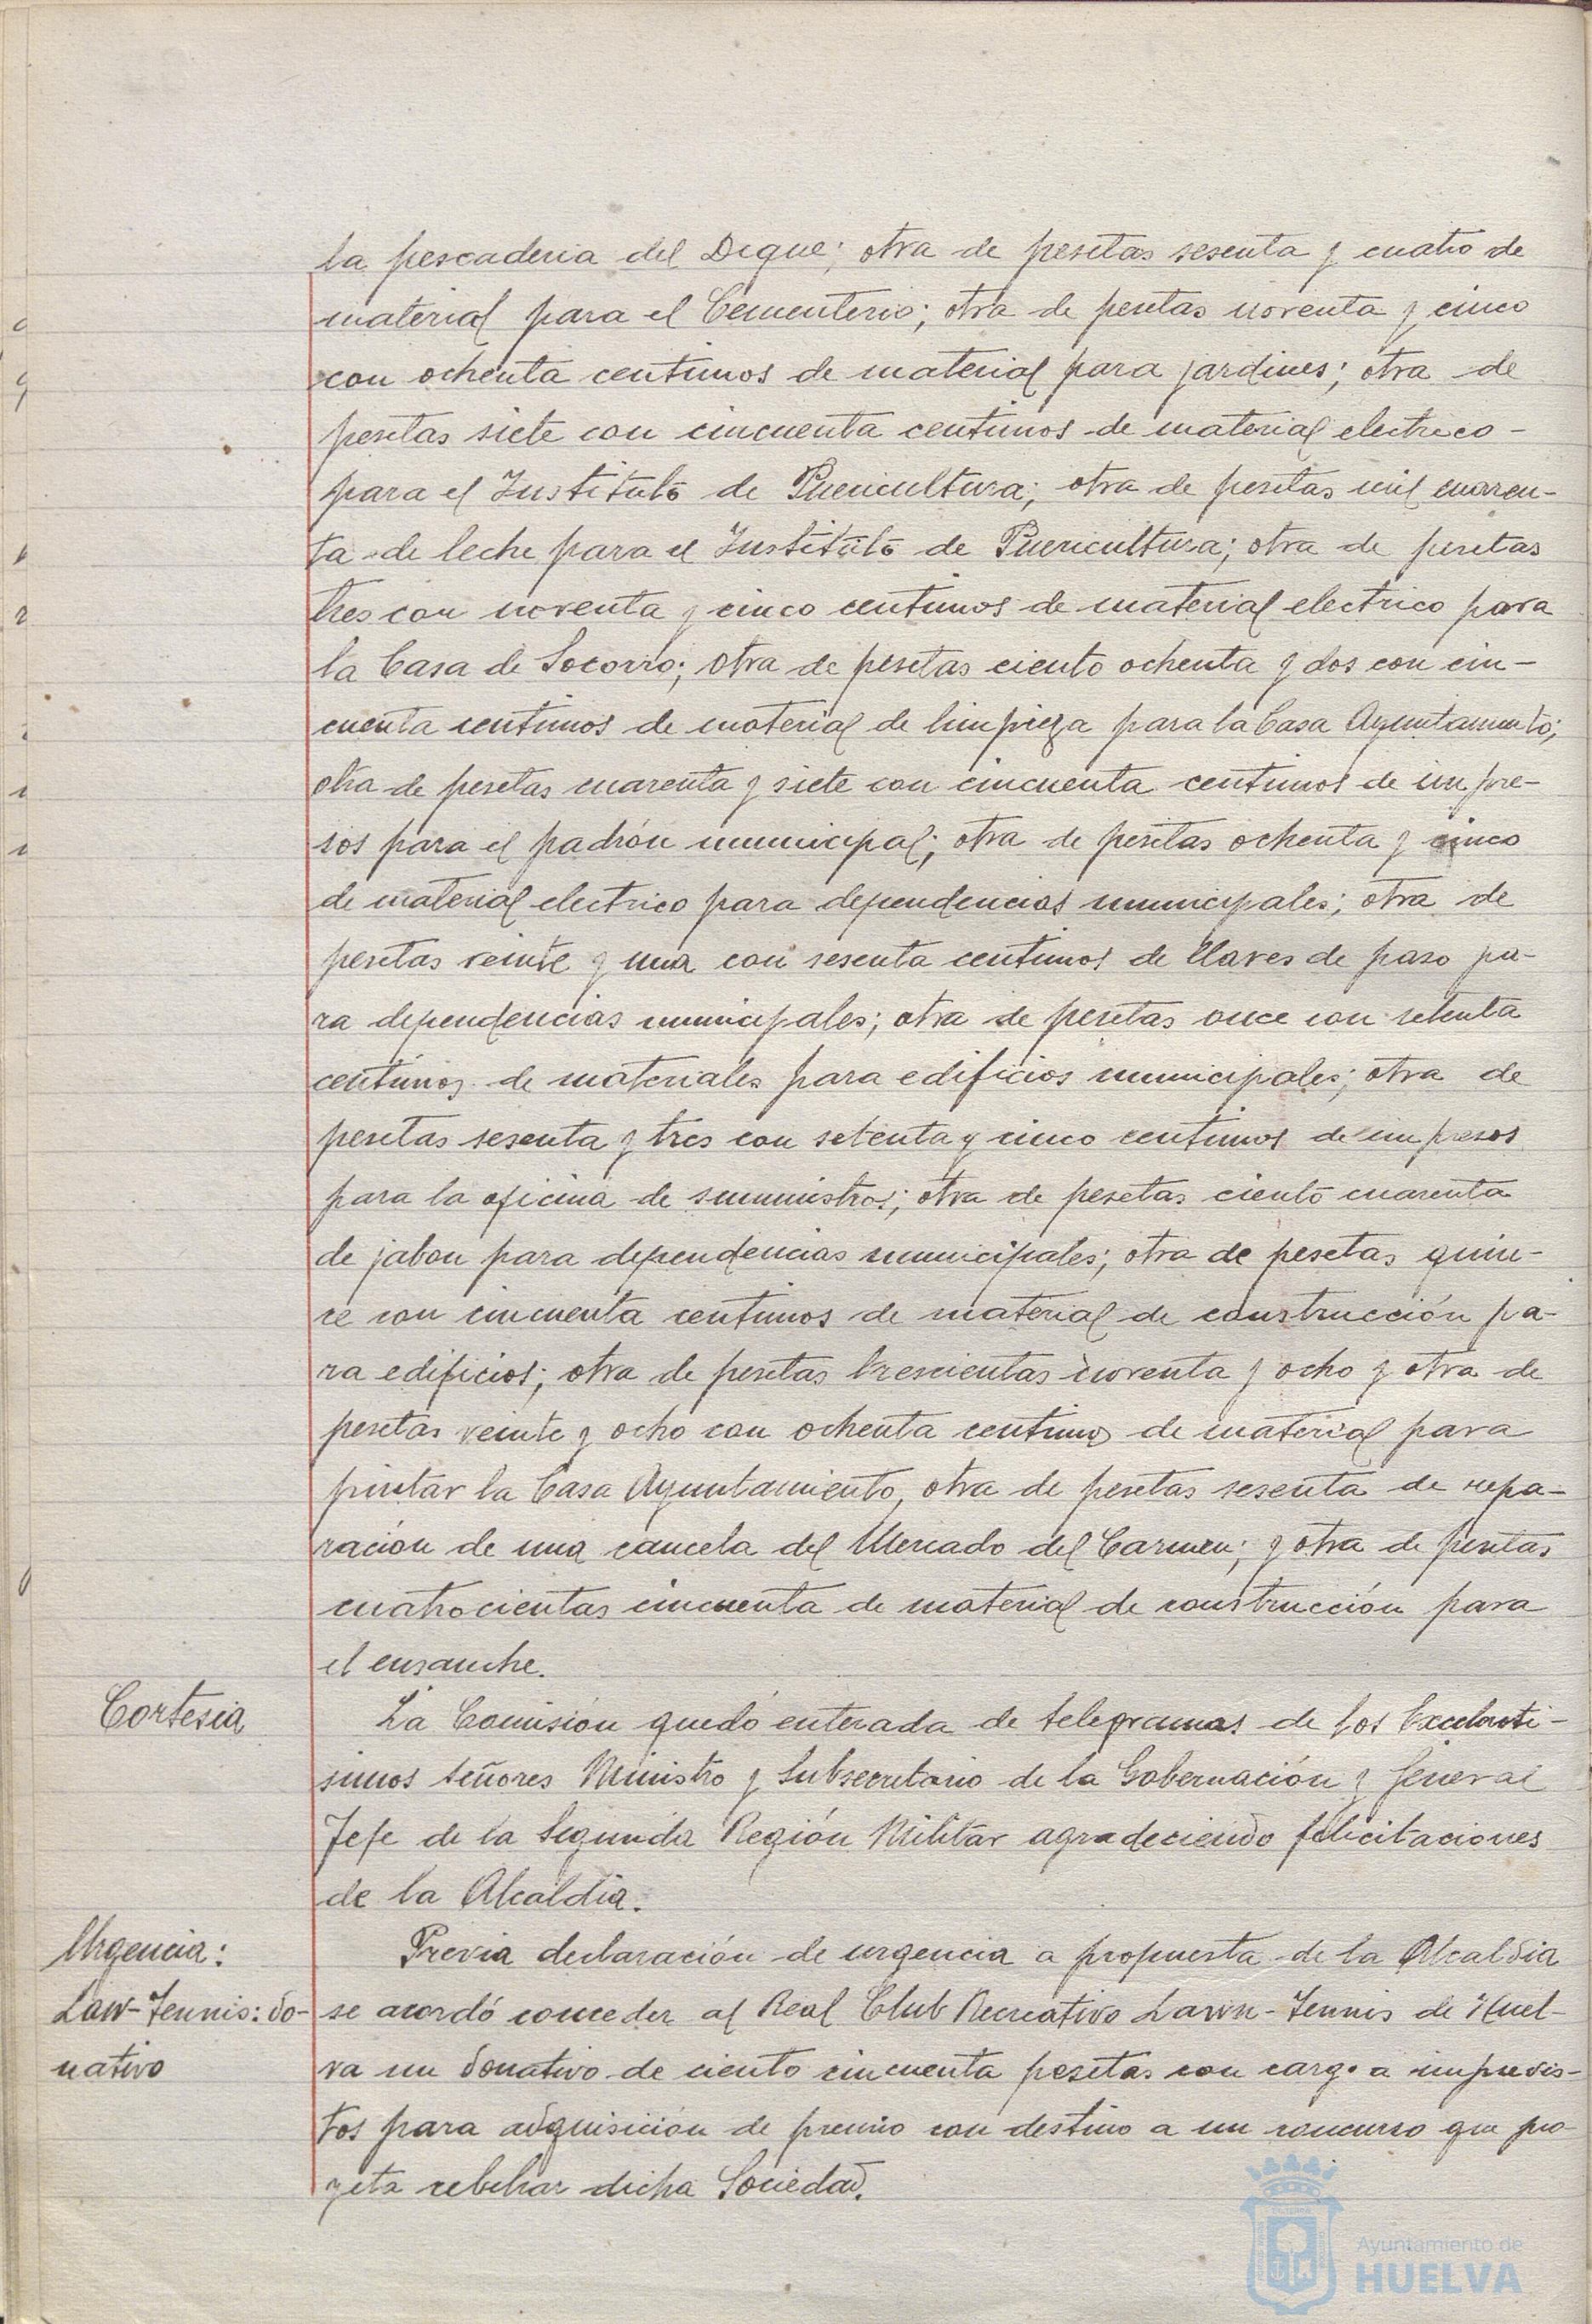 la pescaderia del Dique; otra de pesetas sesenta y cuatro de
material para el Cementerio; otra de pesetas noventa y cinco
con ochenta centimos de material para jardines; otra de
pesetas siete con cincuenta centimos de material electrico-
para el Instituto de Puericultura; otra de pesetas mil cuaren-
ta de leche para el Instituto de Puericultura; otra de pesetas
tres con noventa y cinco centimos de material electrico para
la Casa de Socorro; otra de pesetas ciento ochenta y dos con cin-
cuenta centimos de material de limpieza para la Casa Ayuntamiento;
otra de pesetas cuarenta y siete con cincuenta centimos de impre-
sos para el padrón municipal; otra de pesetas ochenta y cinco
de material electrico para dependencias municipales; otra de
pesetas veinte y una con sesenta centimos de llaves de paso pa-
ra dependencias municipales; otra de pesetas once con setenta
centimos de materiales para edificios municipales; otra de
pesetas sesenta y tres con setenta y cinco centimos de impresos
para la oficina de suministros; otra de pesetas ciento cuarenta
de jabon para dependencias municipales; otra de pesetas quin-
ce con cincuenta centimos de material de construcción pa-
ra edificios; otra de pesetas trescientas noventa y ocho y otra de
pesetas veinte y ocho con ochenta centimos de material para
pintar la Casa Ayuntamiento, otra de pesetas sesenta de repa-
ración de una cancela del Mercado del Carmen; y otra de pesetas
cuatrocientas cincuenta de material de construcción para
el ensanche.
Cortesia
La Comisión quedó enterada de telegramas de los Excelenti-
simos señores Ministro y Subsecretario de la Gobernación y General
Jefe de la Segunda Región Militar agradeciendo felicitaciones
de la Alcaldia.
Urgencia:
Law-Tennis: do-
nativo
Previa declaración de urgencia a propuesta de la Alcaldia
se acordó conceder al Real Club Recreativo Lawn-Tennis de Huel-
va un donativo de ciento cincuenta pesetas con cargo a imprevis-
tos para adquisición de premio con destino a un concurso que pro-
yeta celebrar dicha Sociedad.
Ayuntamiento de
HUELVA